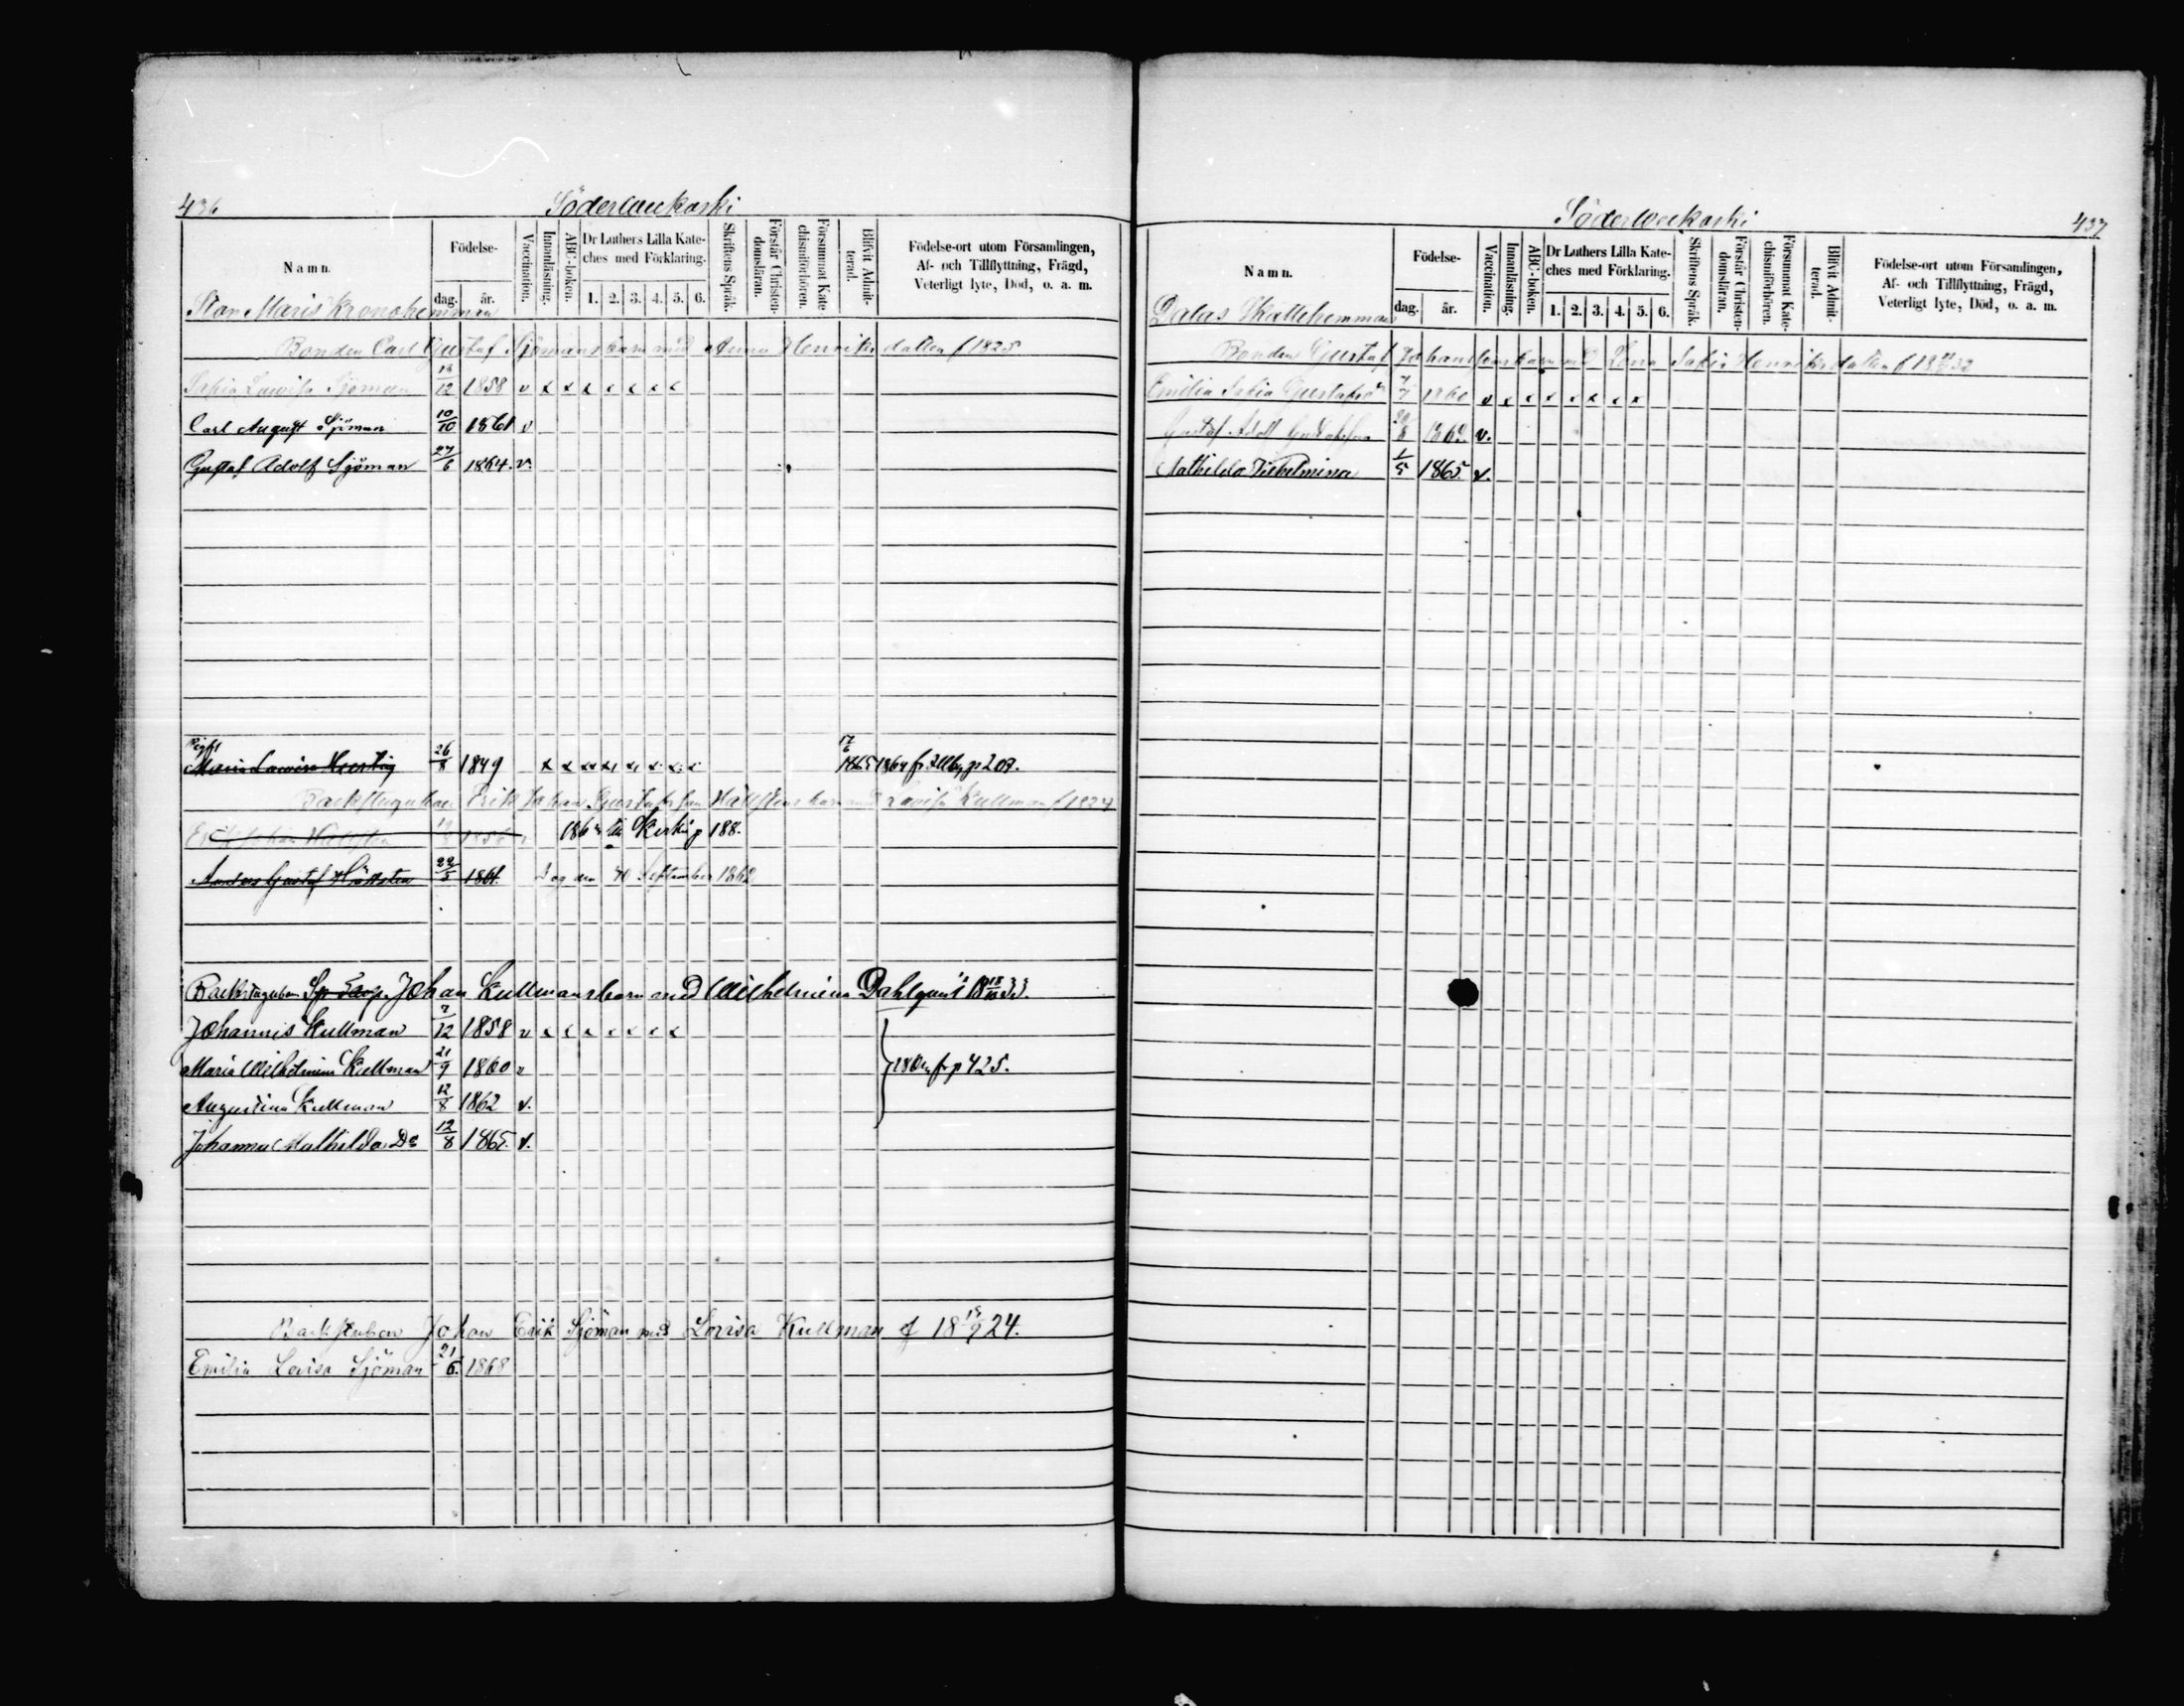 436
Söderlaukoski
Namn.
Födelse-
dag.
år.
Vaccination.
Innanläsning.
ABC-boken.
Dr Luthers Lilla Kate-
ches med Förklaring.
1. 2. 3. 4. 5. 6.
Skriftens Språk.
Förstår Christen-
domsläran.
Försummat Kate
chismiförhören.
Blifvit Admit-
terad.
Födelse-ort utom Församlingen,
Af- och Tillflyttning, Frägd,
Veterligt lyte, Död, o. a. m.
Stor Maris Kronohemman
Bonden Carl Gustaf Sjömans barn med Anna Henriksdotter f 1825
Sofia Lovisa Sjöman 18/12 1858 v x x x x x x x
Carl August Sjöman 10/10 1861 v
Gustaf Adolf Sjöman 27/6 1864. v.
Pig.
Maria Lovisa 26/8 1849 x x x x x x x x 17/6 1865 1864 fr p 207.
Backstugukarl Erik Johan Gustafsson Hällstens barn med Lovisa Kullman f 1824
Erik Johan Hällsten till p 188.
Anders Gustaf Hällsten 22/5 1861. Dog den September 1862
Backstugukarl Johan Kullmans barn med Wilhelmina Dahlqvist
Johannes Kullman 7/12 1858 v x x x x x x x
Maria Wilhelmina Kullman 21/9 1860 v fr p 425.
Augustina Kullman 12/8 1862 v.
Johanna Mathilda Do 12/8 1865. v.
Johan Erik Sjöman med Lovisa Kullman f 18 18/9 24.
Emilia Lovisa Sjöman 21/6. 1868
Söderlaukoski
437
Namn.
Födelse-
dag.
år.
Vaccination.
Innanläsning.
ABC-boken.
Dr Luthers Lilla Kate-
ches med Förklaring.
1. 2. 3. 4. 5. 6.
Skriftens Språk.
Förstår Christen-
domsläran.
Försummat Kate-
chismiförhören.
Blifvit Admit-
terad.
Födelse-ort utom Församlingen,
Af- och Tillflyttning, Frägd,
Veterligt lyte, Död, o. a. m.
Dalas Skattehemman
Bonden Gustaf Johanssons barn med Lena Sofia Henriksdotter
Emilia Sofia Gustafsdr 1860 v x x x x x x x
Gustaf Adolf Gustafsson v.
Mathilda Vilhelmina 1/5 1865. v.